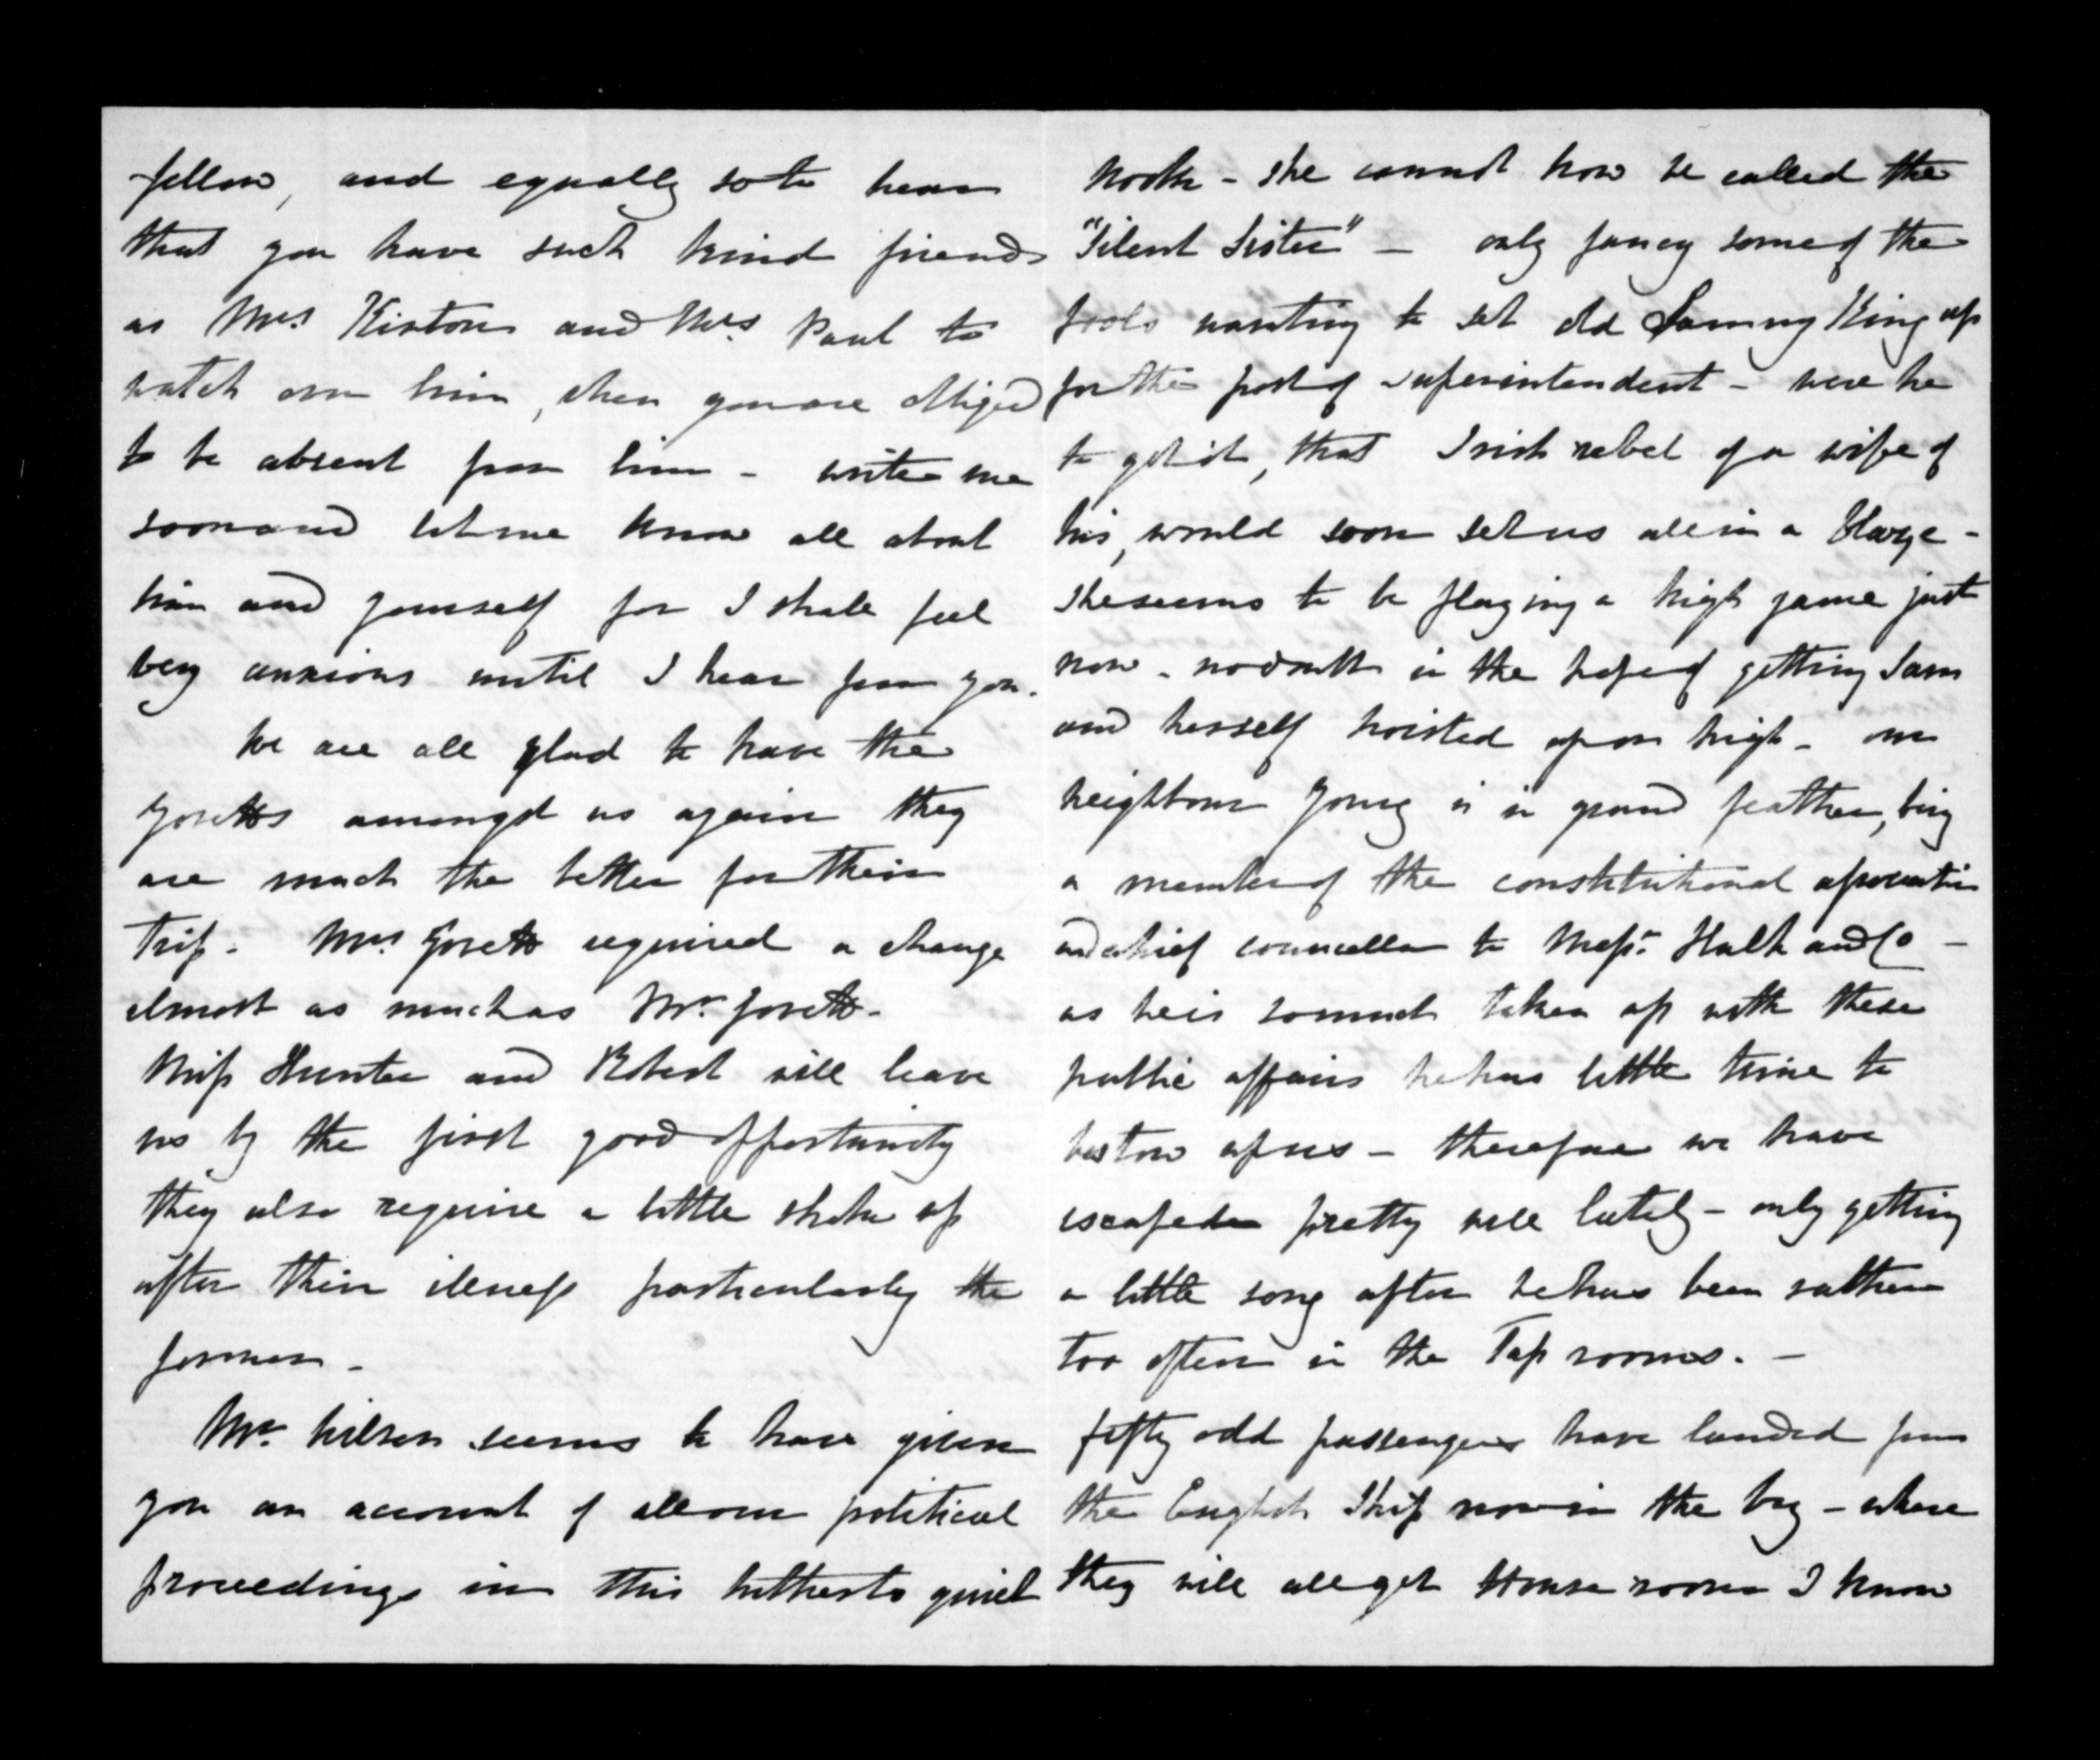 fellow, and equally so to hear
that you have such kind friends
as Mrs Kirton and Mrs Paul to
watch over him, when you are obliged
to be absent from him - write me
soon and let me know all about
him and yourself for I shall feel
very anxious until I hear from you.
We are all glad to have the
amongst us again they
are much the better for their
trip. Mrs. required a change
almost as much as Mr.
Miss Hunter and Robert will leave
us by the first good opportunity
they also require a little shake up
after their illness particularly the
former -
Mr. Wilson seems to have given
you an account of all our political
proceedings in this hitherto quiet
nook - she cannot now be called the
"Silent Sister" - only fancy some of the
fools wanting to set old Sammy King up
for the post of Superintendent - were he
to get it, that Irish rebel of a wife of
his, would soon set us all in a Blaze -
she seems to be playing a high game just
now - no doubt in the hope of getting Sam
and herself hoisted up on high - our
neighbour Young is in grand feather, being
a member of the constitutional association
and chief councellor to Messrs. Halk and Co -
as he is so much taken up with these
public affairs he has little time to
bestow upon us - therefore we have
escaped pretty well lately - only getting
a little song after he has been rather
too often in the Tap rooms. -
fifty odd passengers have landed from
the English Ship now in the bay - where
they will all get House room I know